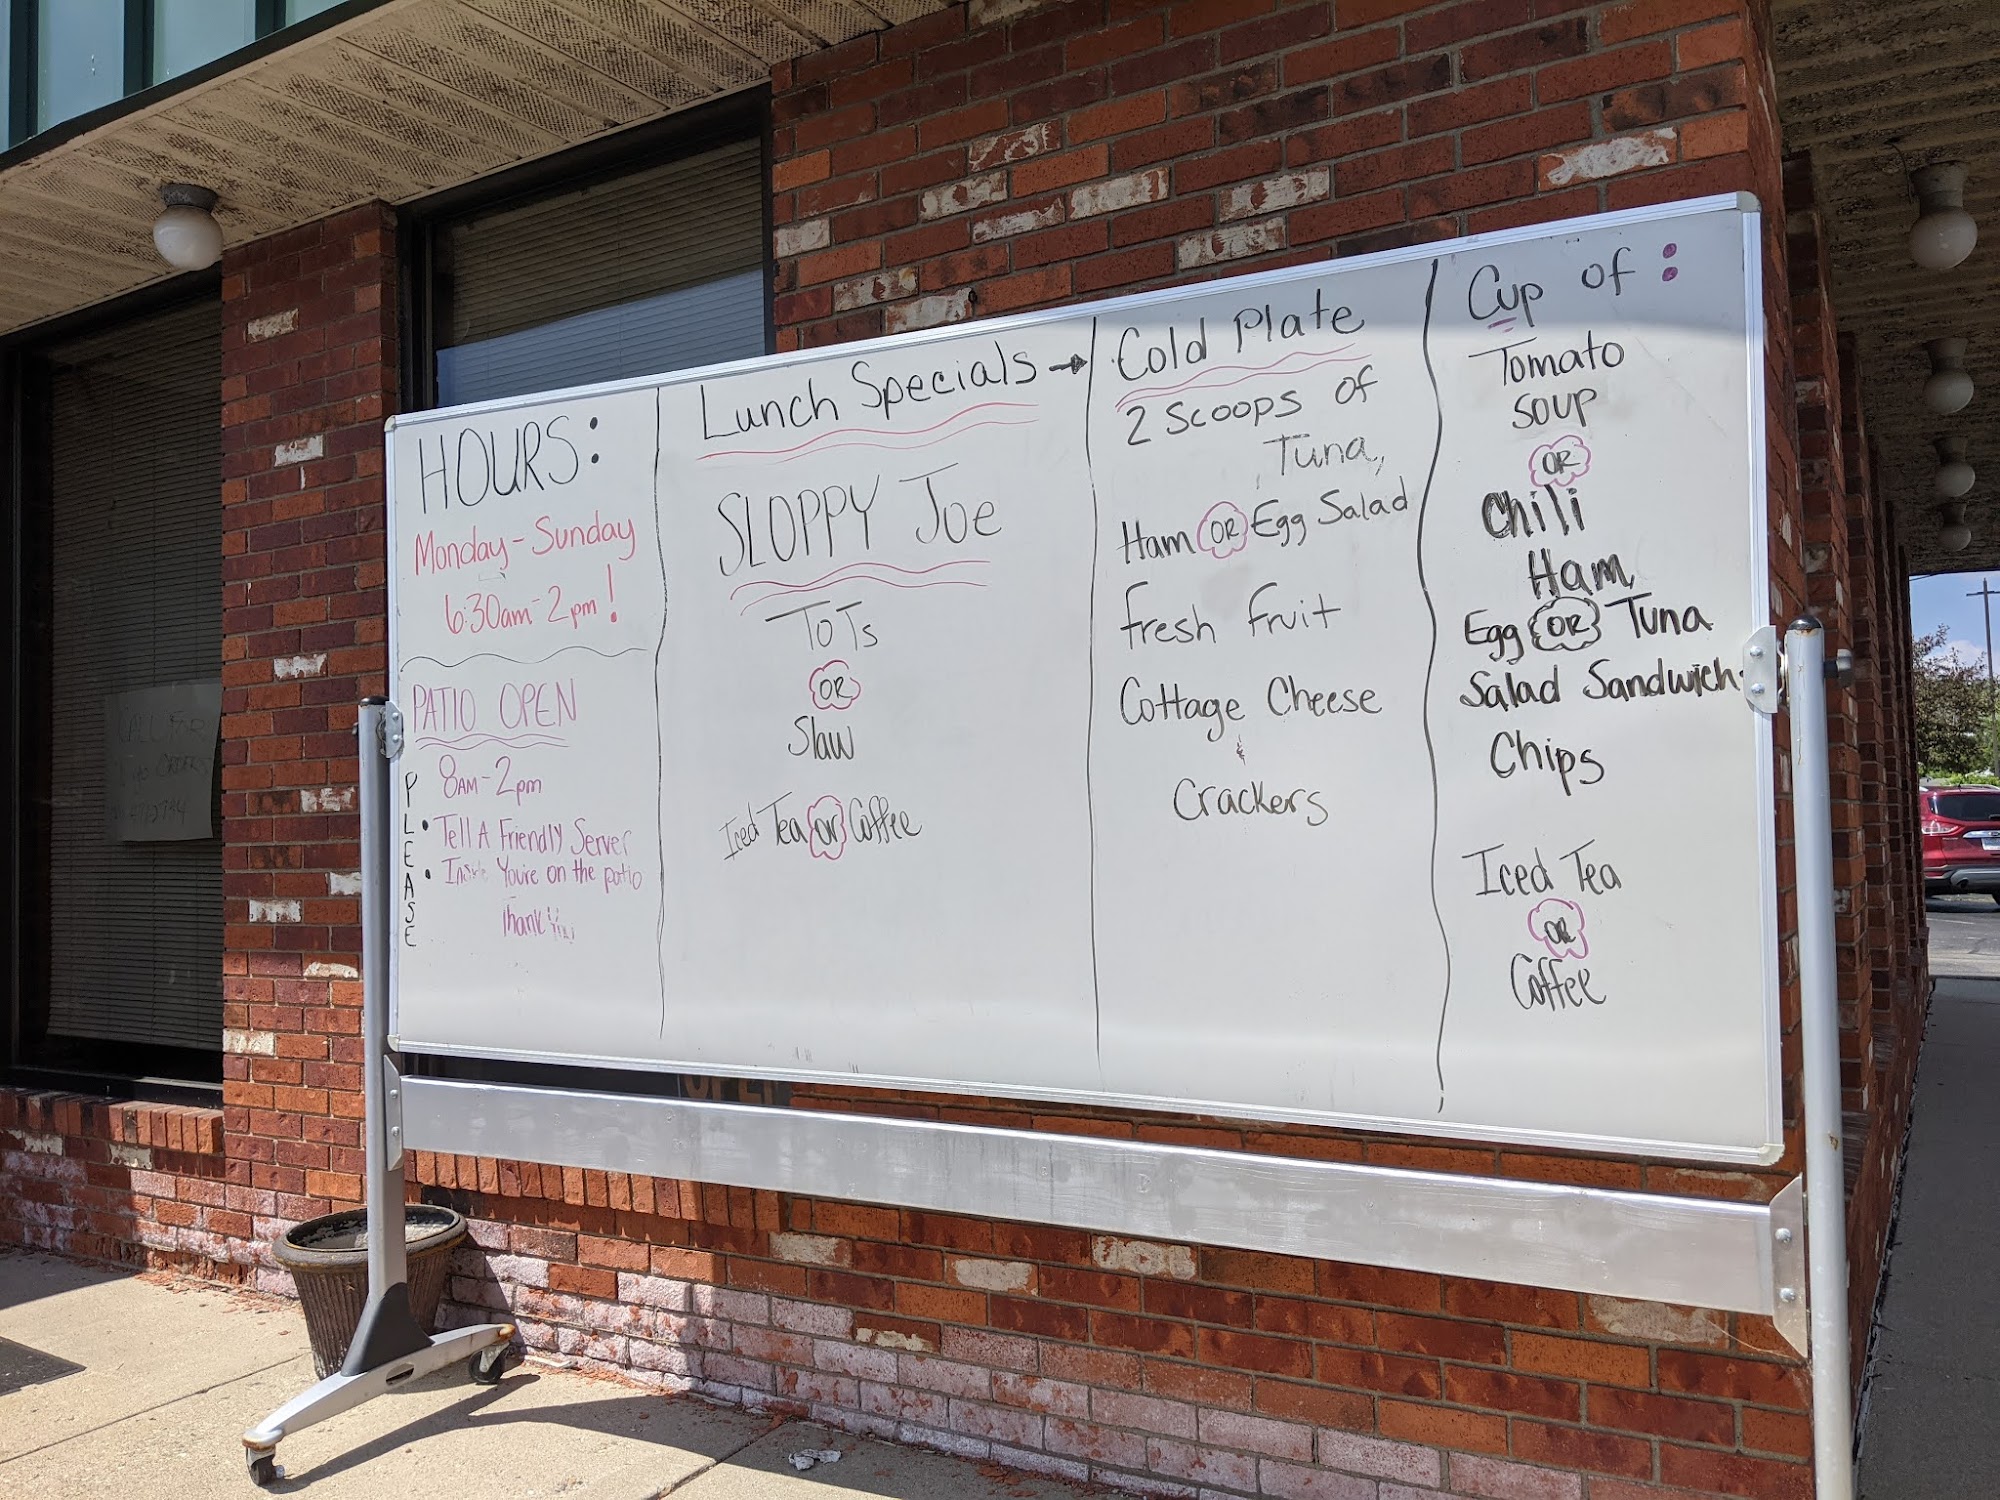 HOURS:
Monday-Sunday
6:30am-2pm!
PATIO OPEN
8AM-2pm
PLEASE
• Tell A Friendly Server
• Inside You're on the patio
Thank You
Lunch Specials →
SLOPPY JOE
TOTs
OR
Slaw
Iced Tea or Coffee
Cold Plate
2 Scoops of
Tuna,
Ham OR Egg Salad
fresh fruit
Cottage Cheese
&
Crackers
Cup of:
Tomato
soup
OR
Chili
Ham,
Egg OR Tuna
Salad Sandwich
Chips
Iced Tea
OR
Coffee
CALL
ORDERS
OPEN